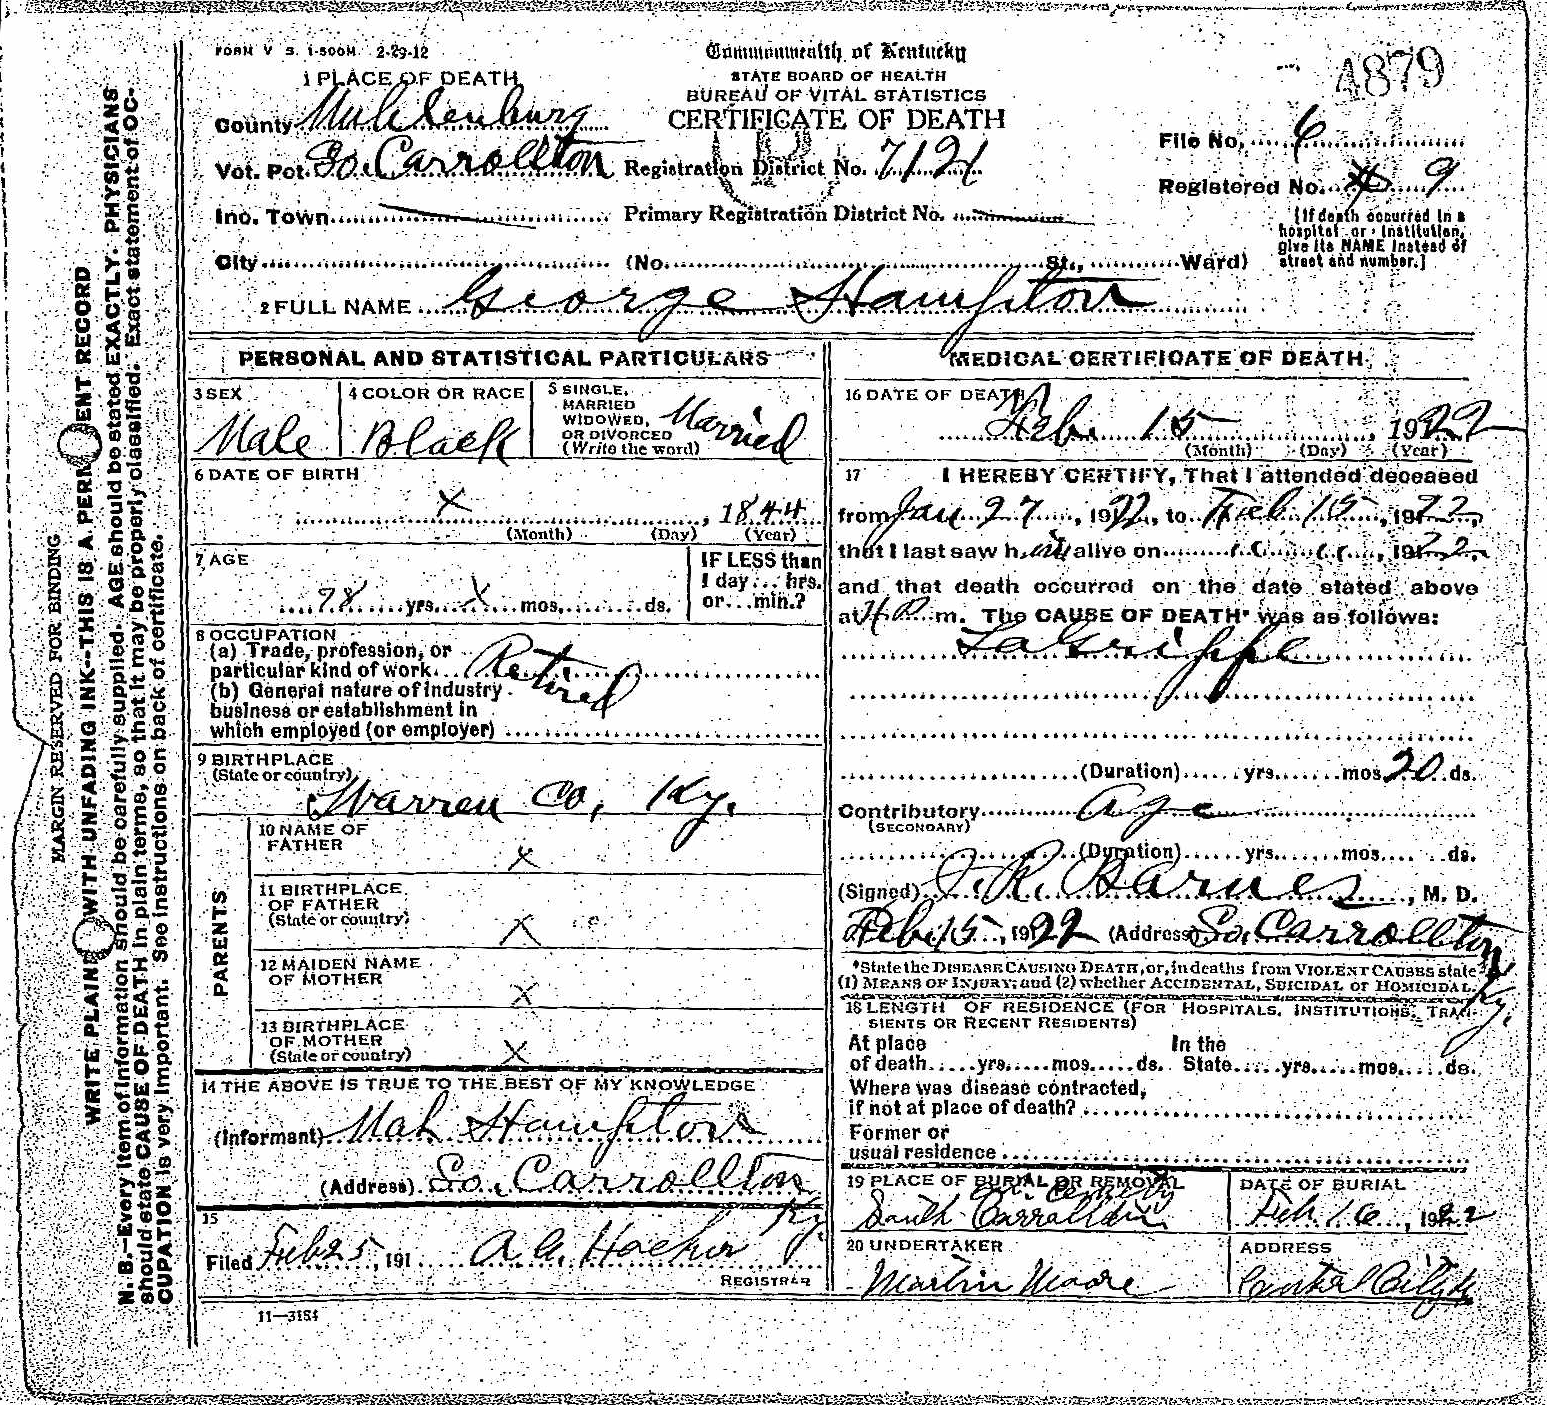 FORM V. S. 1-500M. 2-29-12
Commonwealth of Kentucky
4879
1 PLACE OF DEATH
STATE BOARD OF HEALTH
BUREAU OF VITAL STATISTICS
County Muhlenburg
CERTIFICATE OF DEATH
File No. 6
Vot. Pct. So. Carrollton Registration District No. 7121
Registered No. 9
Inc. Town Primary Registration District No.
[If death occurred in a
hospital or institution,
give its NAME instead of
street and number.]
City (No. St., Ward)
2 FULL NAME George Hampton
PERSONAL AND STATISTICAL PARTICULARS
3 SEX
Male
4 COLOR OR RACE
Black
5 SINGLE,
MARRIED
WIDOWED,
OR DIVORCED
(Write the word)
Married
6 DATE OF BIRTH
X , 1844
(Month) (Day) (Year)
7 AGE
78 yrs. X mos. ds.
IF LESS than
1 day... hrs.
or... min.?
8 OCCUPATION
(a) Trade, profession, or
particular kind of work Retired
(b) General nature of industry
business or establishment in
which employed (or employer)
9 BIRTHPLACE
(State or country)
Warren Co, Ky.
PARENTS
10 NAME OF
FATHER
X
11 BIRTHPLACE
OF FATHER
(State or country)
X
12 MAIDEN NAME
OF MOTHER
X
13 BIRTHPLACE
OF MOTHER
(State or country)
X
14 THE ABOVE IS TRUE TO THE BEST OF MY KNOWLEDGE
(Informant) Hampton
(Address) So. Carrollton
Ky.
15
Filed Feb 25, 191
REGISTRAR
11-3154
MEDICAL CERTIFICATE OF DEATH
16 DATE OF DEATH
Feb. 15, 1922
(Month) (Day) (Year)
17 I HEREBY CERTIFY, That I attended deceased
from Jan 27, 1922, to Feb 15, 1922,
that I last saw him alive on " " , 1922,
and that death occurred on the date stated above
at 4 P. m. The CAUSE OF DEATH* was as follows:
LaGrippe
(Duration) yrs. mos. 20 ds.
Contributory Age
(SECONDARY)
(Duration) yrs. mos. ds.
(Signed) J. R. Barnes, M. D.
Feb. 15, 1922 (Address) So. Carrollton
Ky.
*State the DISEASE CAUSING DEATH, or, in deaths from VIOLENT CAUSES state
(1) MEANS OF INJURY; and (2) whether ACCIDENTAL, SUICIDAL or HOMICIDAL.
18 LENGTH OF RESIDENCE (FOR HOSPITALS, INSTITUTIONS, TRAN-
SIENTS OR RECENT RESIDENTS)
At place In the
of death yrs. mos. ds. State yrs. mos. ds.
Where was disease contracted,
if not at place of death?
Former or
usual residence
19 PLACE OF BURIAL OR REMOVAL
South Carrollton
DATE OF BURIAL
Feb. 16, 1922
20 UNDERTAKER
Martin Moore
ADDRESS
Central City Ky
MARGIN RESERVED FOR BINDING
WRITE PLAINLY WITH UNFADING INK--THIS IS A PERMANENT RECORD
N. B.--Every item of information should be carefully supplied. AGE should be stated EXACTLY. PHYSICIANS
should state CAUSE OF DEATH in plain terms, so that it may be properly classified. Exact statement of OC-
CUPATION is very important. See instructions on back of certificate.